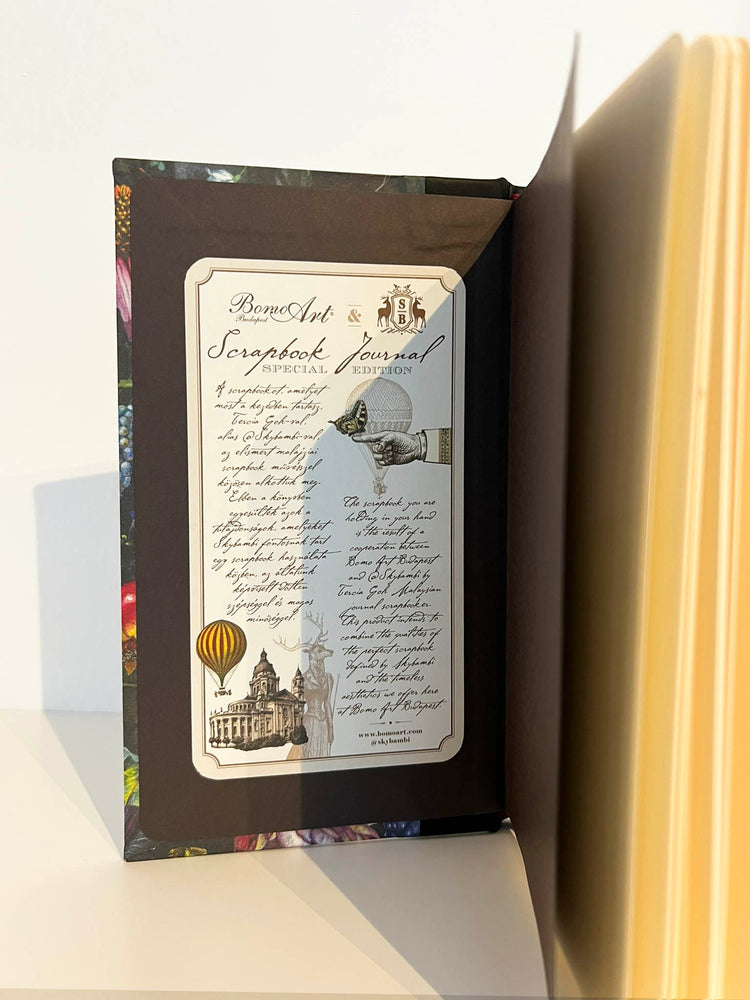 BomoArt® & S B
Budapest
Scrapbook Journal
SPECIAL EDITION
A scrapbookot, amelyet
most a kezedben tartasz,
Tercia Goh-val,
alias @Skybambi-val,
az elismert malajziai
scrapbook művésszel
közösen alkottuk meg.
Ebben a könyvben
egyesültek azok a
tulajdonságok, amelyeket
Skybambi fontosnak tart
egy scrapbook használata
közben, az általunk
képviselt időtlen
szépséggel és magas
minőséggel.
The scrapbook you are
holding in your hand
is the result of a
cooperation between
Bomo Art Budapest
and @Skybambi by
Tercia Goh Malaysian
journal scrapbooker.
This product intends to
combine the qualities of
the perfect scrapbook
defined by Skybambi
and the timeless
aesthetics we offer here
at Bomo Art Budapest.
www.bomoart.com
@skybambi